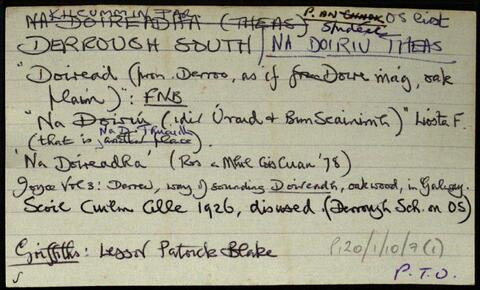 KILCUMMIN PAR
NA DOIREADHA (THEAS) P. AN OS list
DERROUGH SOUTH / NA DOIRIU THEAS
"Doiread (pron. Derroo, as if from Doire mág, oak
plain)": FNB
"Na Doiriú (idir Úraid & Bun Scainimh)" Liosta F.
(that is another place).
'Na Doireadha' (Ros a Mhíl Cois Cuan '78)
Joyce Vol 3: Derrew, way of sounding Doireadh, oakwood, in Galway.
Scoil Cuilm Cille 1926, disused. (Derrough Sch. on OS)
Griffiths: Lessor Patrick Blake
P120/1/10/7(i)
P.T.O.